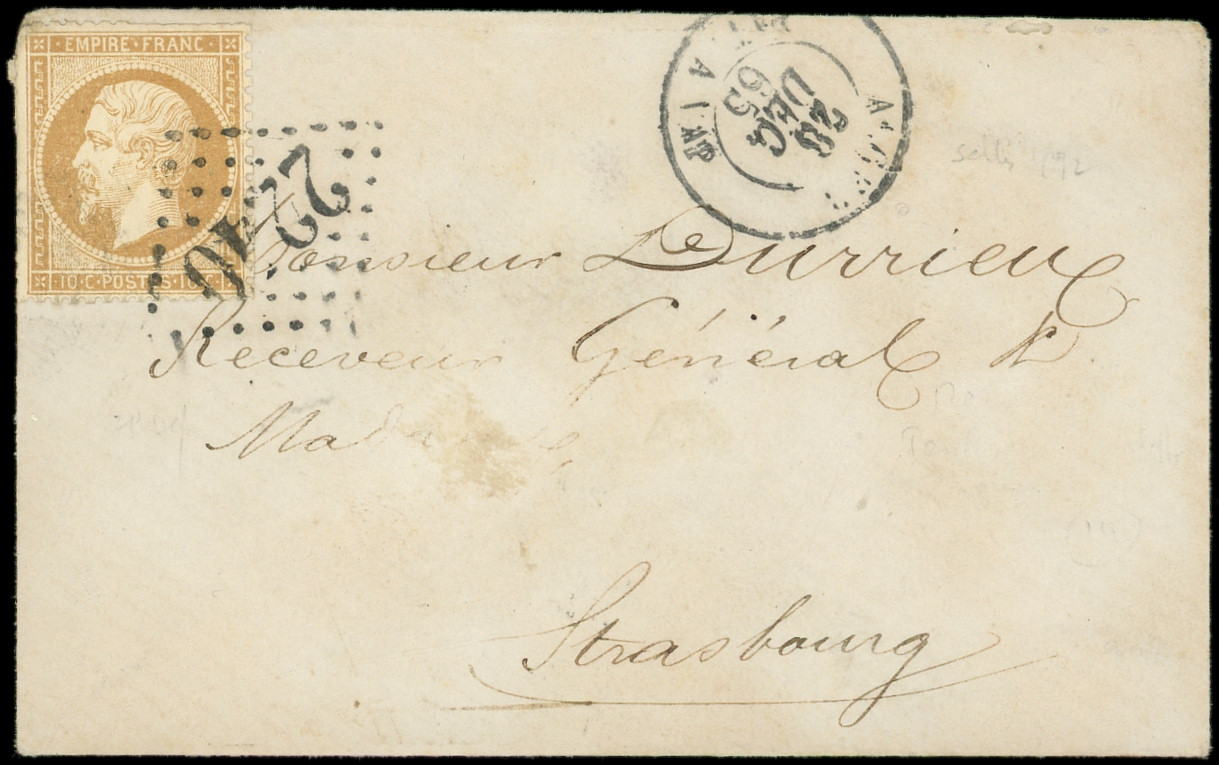 EMPIRE·FRANC·
10·C·POSTES·10·C
2240
28
DEC
65
Monsieur Durrieu
Receveur Général &
Madame
Strasbourg